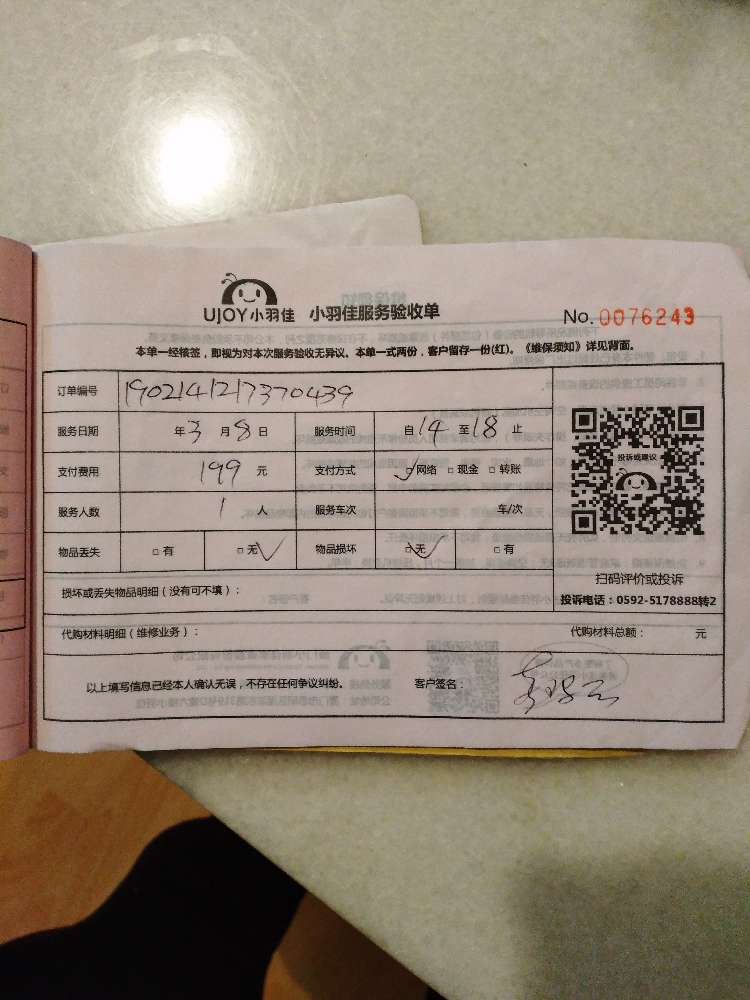 UJOY小羽佳 小羽佳服务验收单 No. 0076243
本单一经核签，即视为对本次服务验收无异议。本单一式两份，客户留存一份(红)。《维保须知》详见背面。
订单编号 1902141217370439
服务日期 年3月8日 服务时间 自14至18止
支付费用 199元 支付方式 ☑网络 □现金 □转账
服务人数 1人 服务车次 车/次
物品丢失 □有 ☑无 物品损坏 ☑无 □有
投诉或建议
扫码评价或投诉
投诉电话：0592-5178888转2
损坏或丢失物品明细（没有可不填）：
代购材料明细（维修业务）： 代购材料总额： 元
以上填写信息已经本人确认无误，不存在任何争议纠纷。 客户签名：